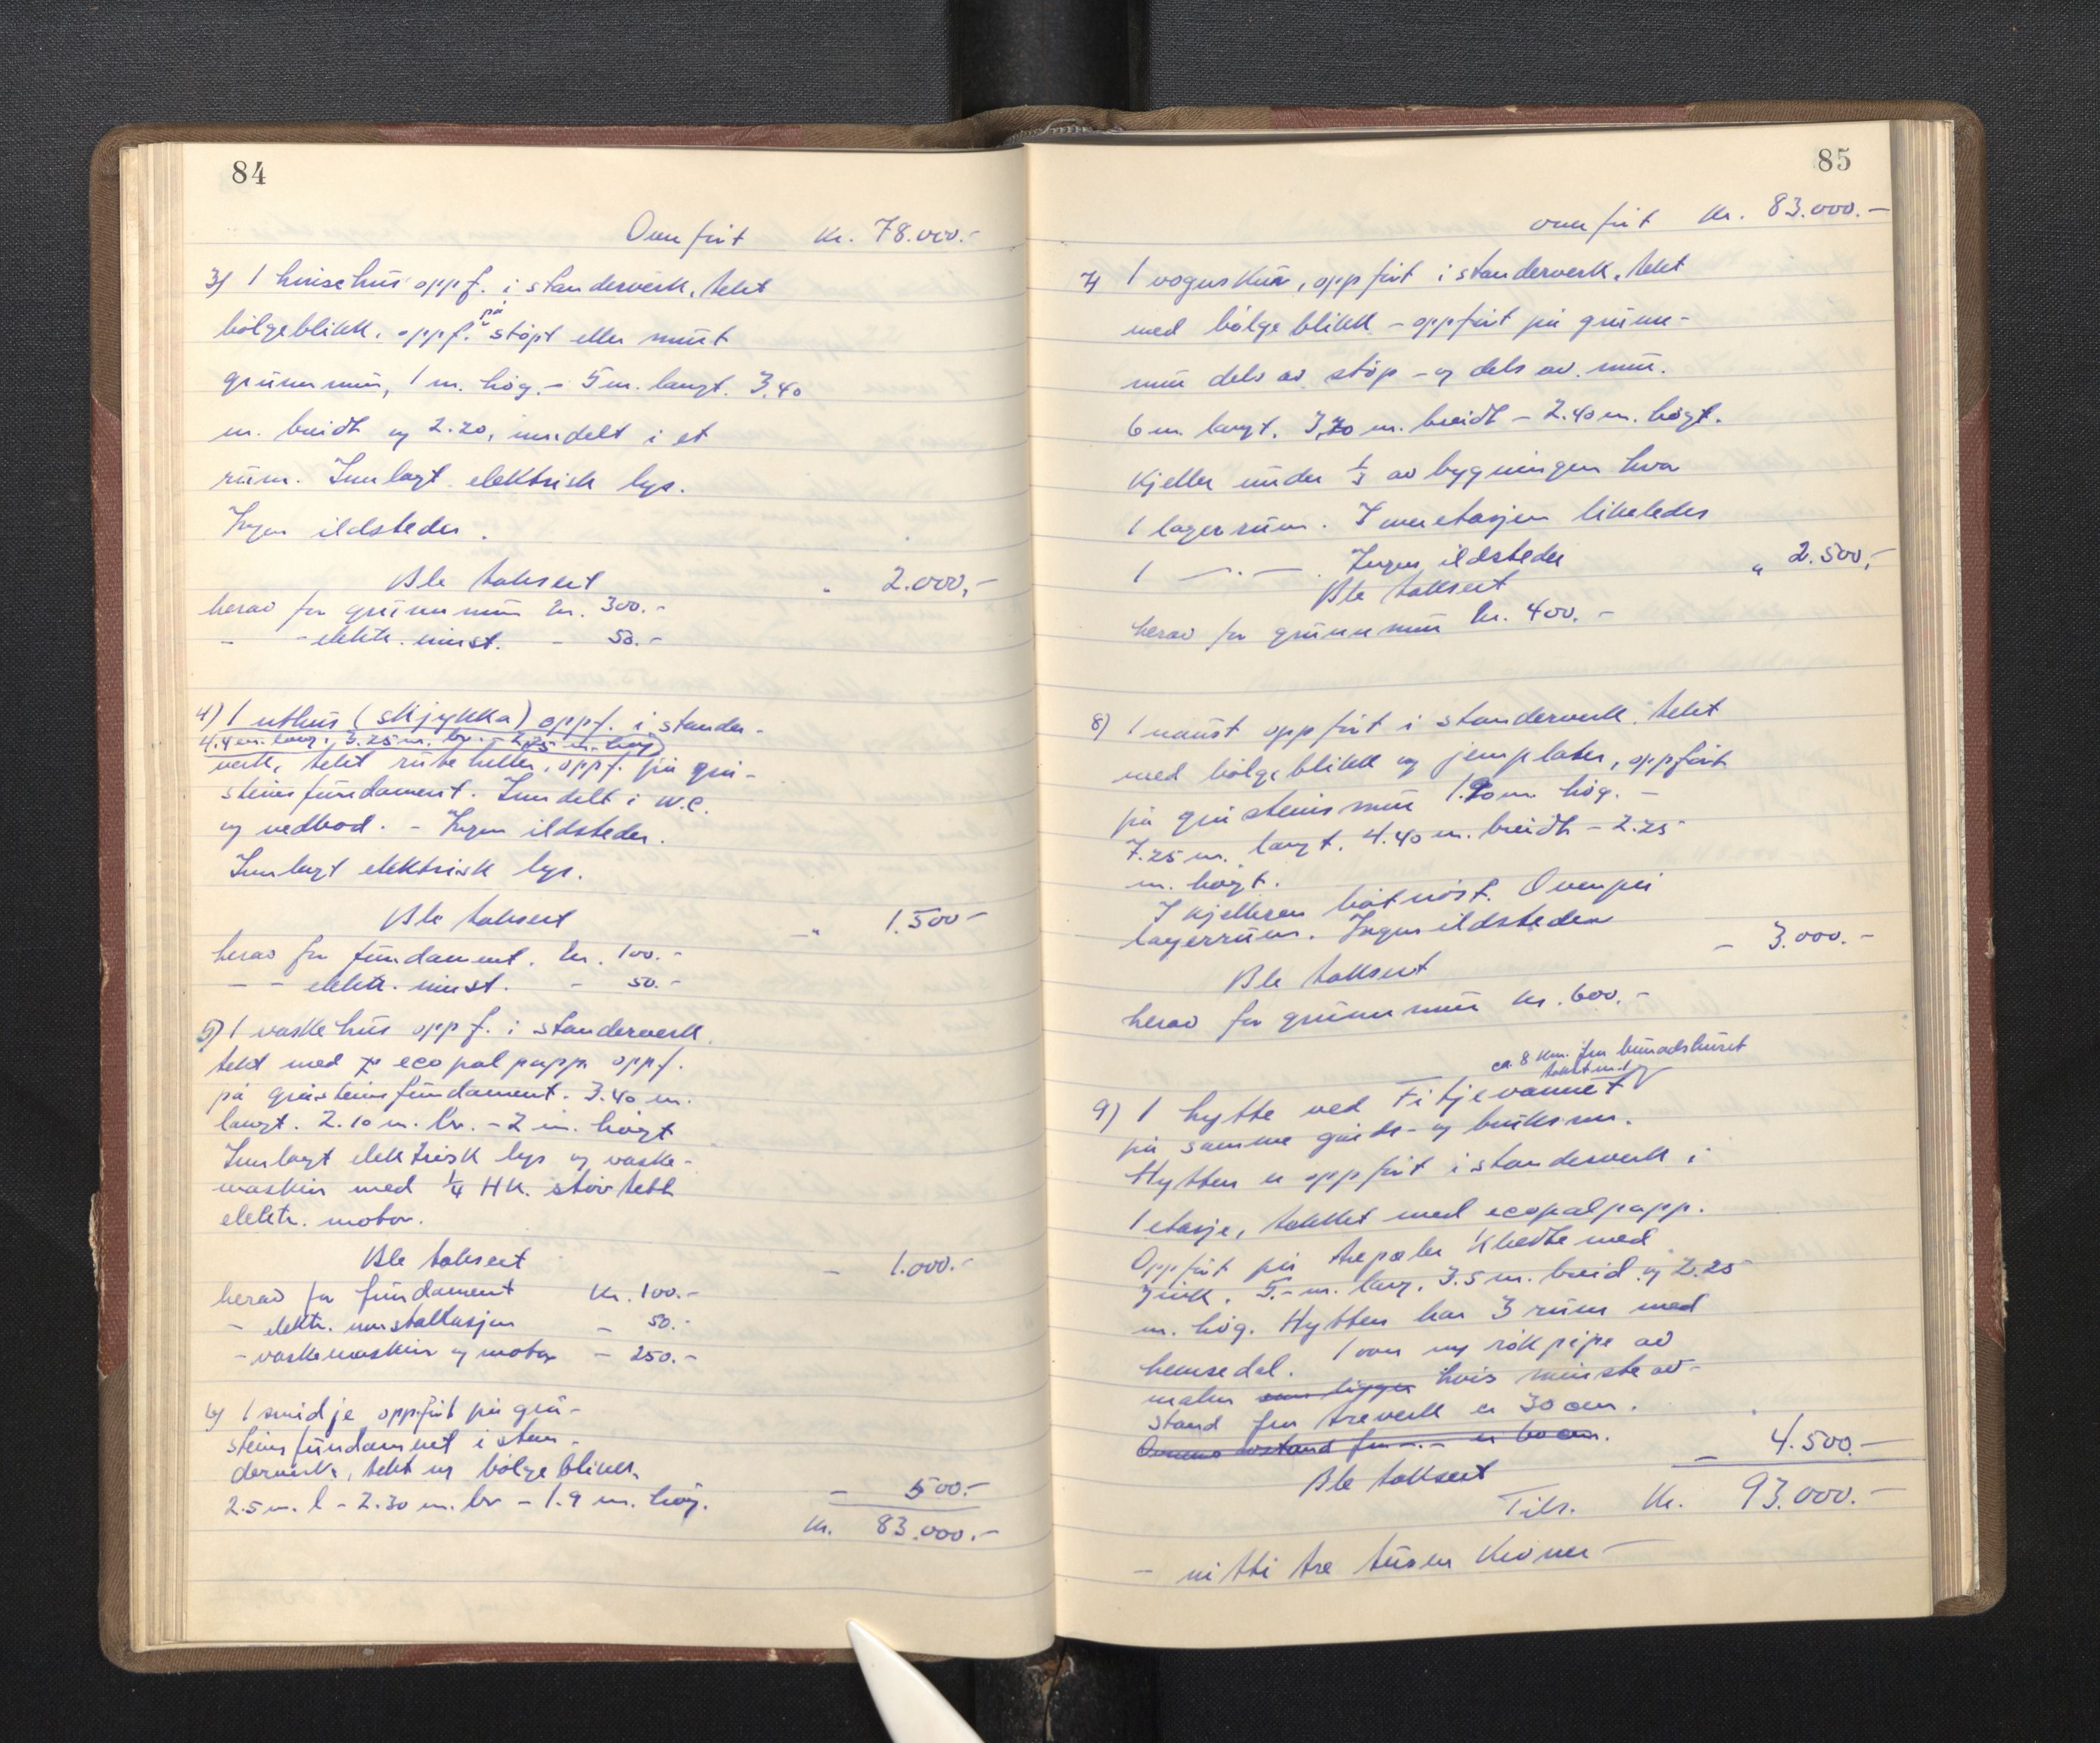 84
Overført Kr. 78.000.-
3) 1 hønsehus oppf. i standerverk, tekt
på
bølgeblikk, oppf. støpt eller murt
grunnmur, 1 m. høg. - 5 m. langt. 3.40
m. breidt og 2.20, inndelt i et
rum. Innlagt elektrisk lys.
Ingen ildsteder.
Ble taksert " 2.000,-
herav for grunnmur kr. 300.-
- - elektr. innst. - 50.-
4) 1 uthus (skjykka) oppf. i stander-
4.4 m. lang, 3.25 m. br. - 2.25 m. høg
verk, tekt ruteheller, oppf. på grå-
steinsfundament. Inndelt i W.C.
og vedbod. - Ingen ildsteder.
Innlagt elektrisk lys.
Ble taksert -"- 1.500-
herav for fundament. kr. 100.-
- - elektr. innst. - 50.-
5) 1 vaskehus oppf. i standerverk
tekt med ecopalpapp oppf.
på gråsteinsfundament. 3.40 m.
langt. 2.10 m. br. - 2 m. høgt
Innlagt elektrisk lys og vaske-
maskin med 1/4 HK. støvtett
elektr. motor.
Ble taksert - 1.000.-
herav for fundament Kr. 100.-
- elektr. innstallasjon - 50.-
- vaskemaskin og motor - 250.-
6) 1 smidje oppført på grå-
steinsfundament i stan-
derverk, tekt m bølgeblikk,
2.5 m. l - 2.30 m. br - 1.9 m. høg. - 500.-
Kr. 83.000.-
85
overført Kr. 83.000.-
7) 1 vognskur, oppført i standerverk, tekt
med bølgeblikk - oppført på grunn-
mur dels av støp - og dels av mur.
6 m. langt. 3,70 m. breidt - 2.40 m. høgt.
Kjeller under 1/3 av bygningen hvor
1 lagerrum. I overetasjen likeledes
1 -"-. Ingen ildsteder " 2.500,-
Ble taksert
herav for grunnmur kr. 400.-
8) 1 naust oppført i standerverk, tekt
med bølgeblikk og jernplater, oppført
på gråsteinsmur 1.90 m høg. -
7.25 m. langt. 4.40 m. breidt - 2.25
m. høgt.
I kjelleren båtnøst. Ovenpå
lagerrum. Ingen ildsteder - 3.000.-
Ble taksert
herav for grunnmur kr. 600.-
ca. 8 km. fra bunadshuset
takst nr. 1
9) 1 hytte ved Fitjevannet
på samme gårds- og bruksnr.
Hytten er oppført i standerverk i
1 etasje, tekket med ecopalpapp.
Oppført på trepæler kledte med
zink. 5.- m. lang. 3.5 m. breid og 2.25
m. høg. Hytten har 3 rum med
hemsedel. 1 ovn og røkpipe av
malm som ligger hvis minste av-
stand fra treverk er 30 cm.
Ovnens avstand fra -.- er 60 cm.
Ble taksert - 4.500.-
Tils. Kr. 93.000.-
- nitti tre tusen kroner -